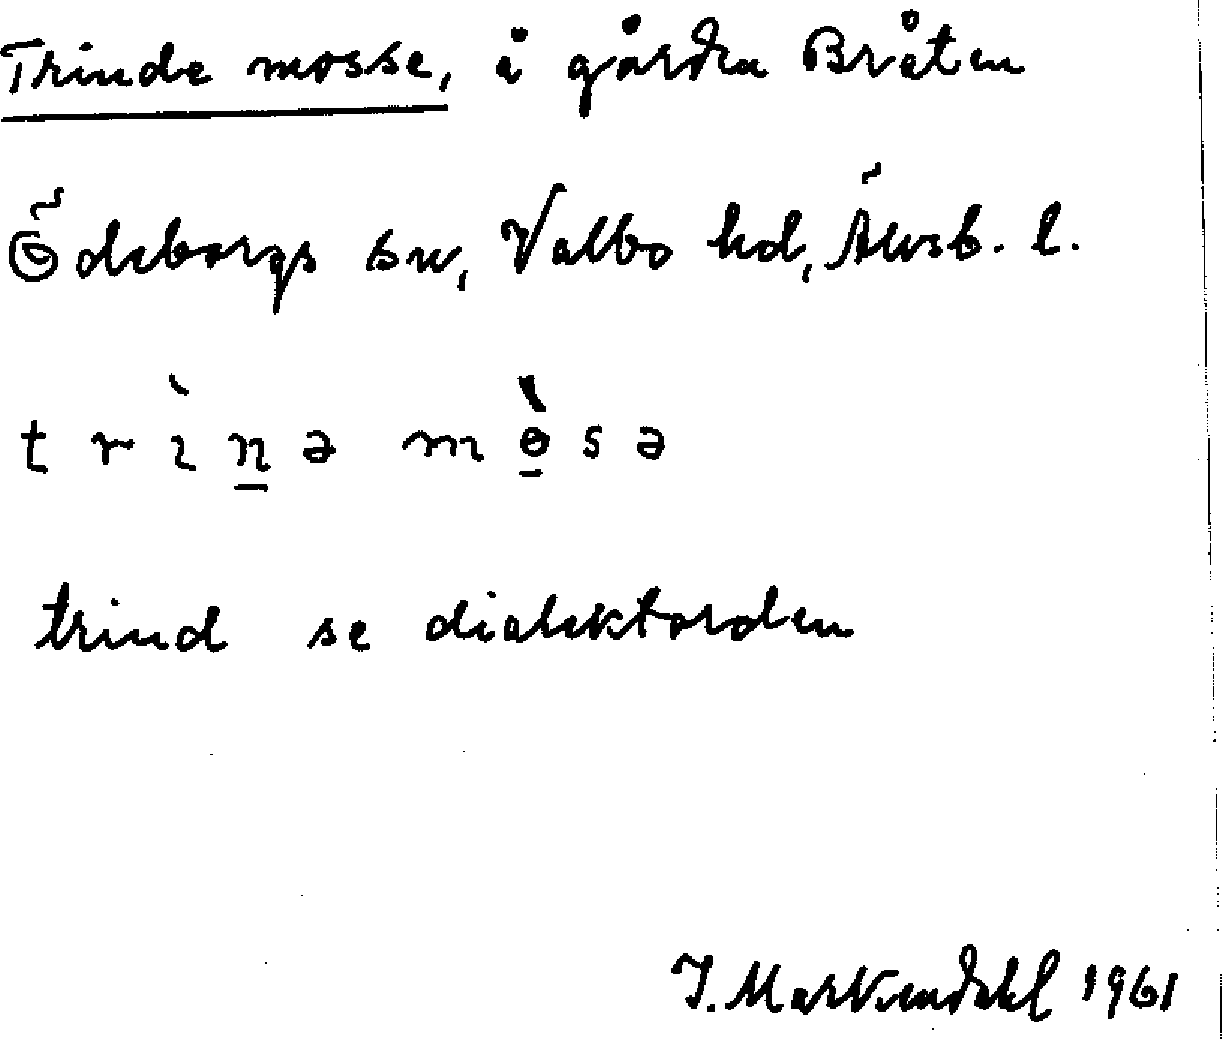 Trinde mosse, å gården Bråten
Ödeborgs sn, Valbo hd, Älvsb. l.
trìn̲ə mɵ̲̀sə
trind se dialektorden
J. Markendahl 1961